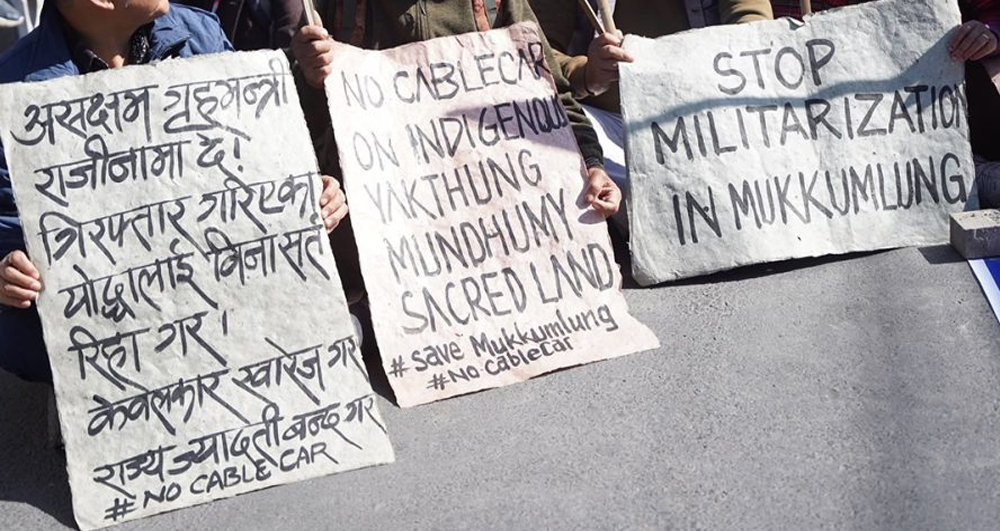 असक्षम गृहमन्त्री
राजीनामा दे!
गिरफ्तार गरिएका
योद्धालाई बिनासर्त
रिहा गर।
केबलकार खारेज गर
राज्य ज्यादती बन्द गर
# NO CABLE CAR
NO CABLECAR
ON INDIGENOUS
YAKTHUNG
MUNDHUMY
SACRED LAND
# Save Mukkumlung
#No CableCar
STOP
MILITARIZATION
IN MUKKUMLUNG